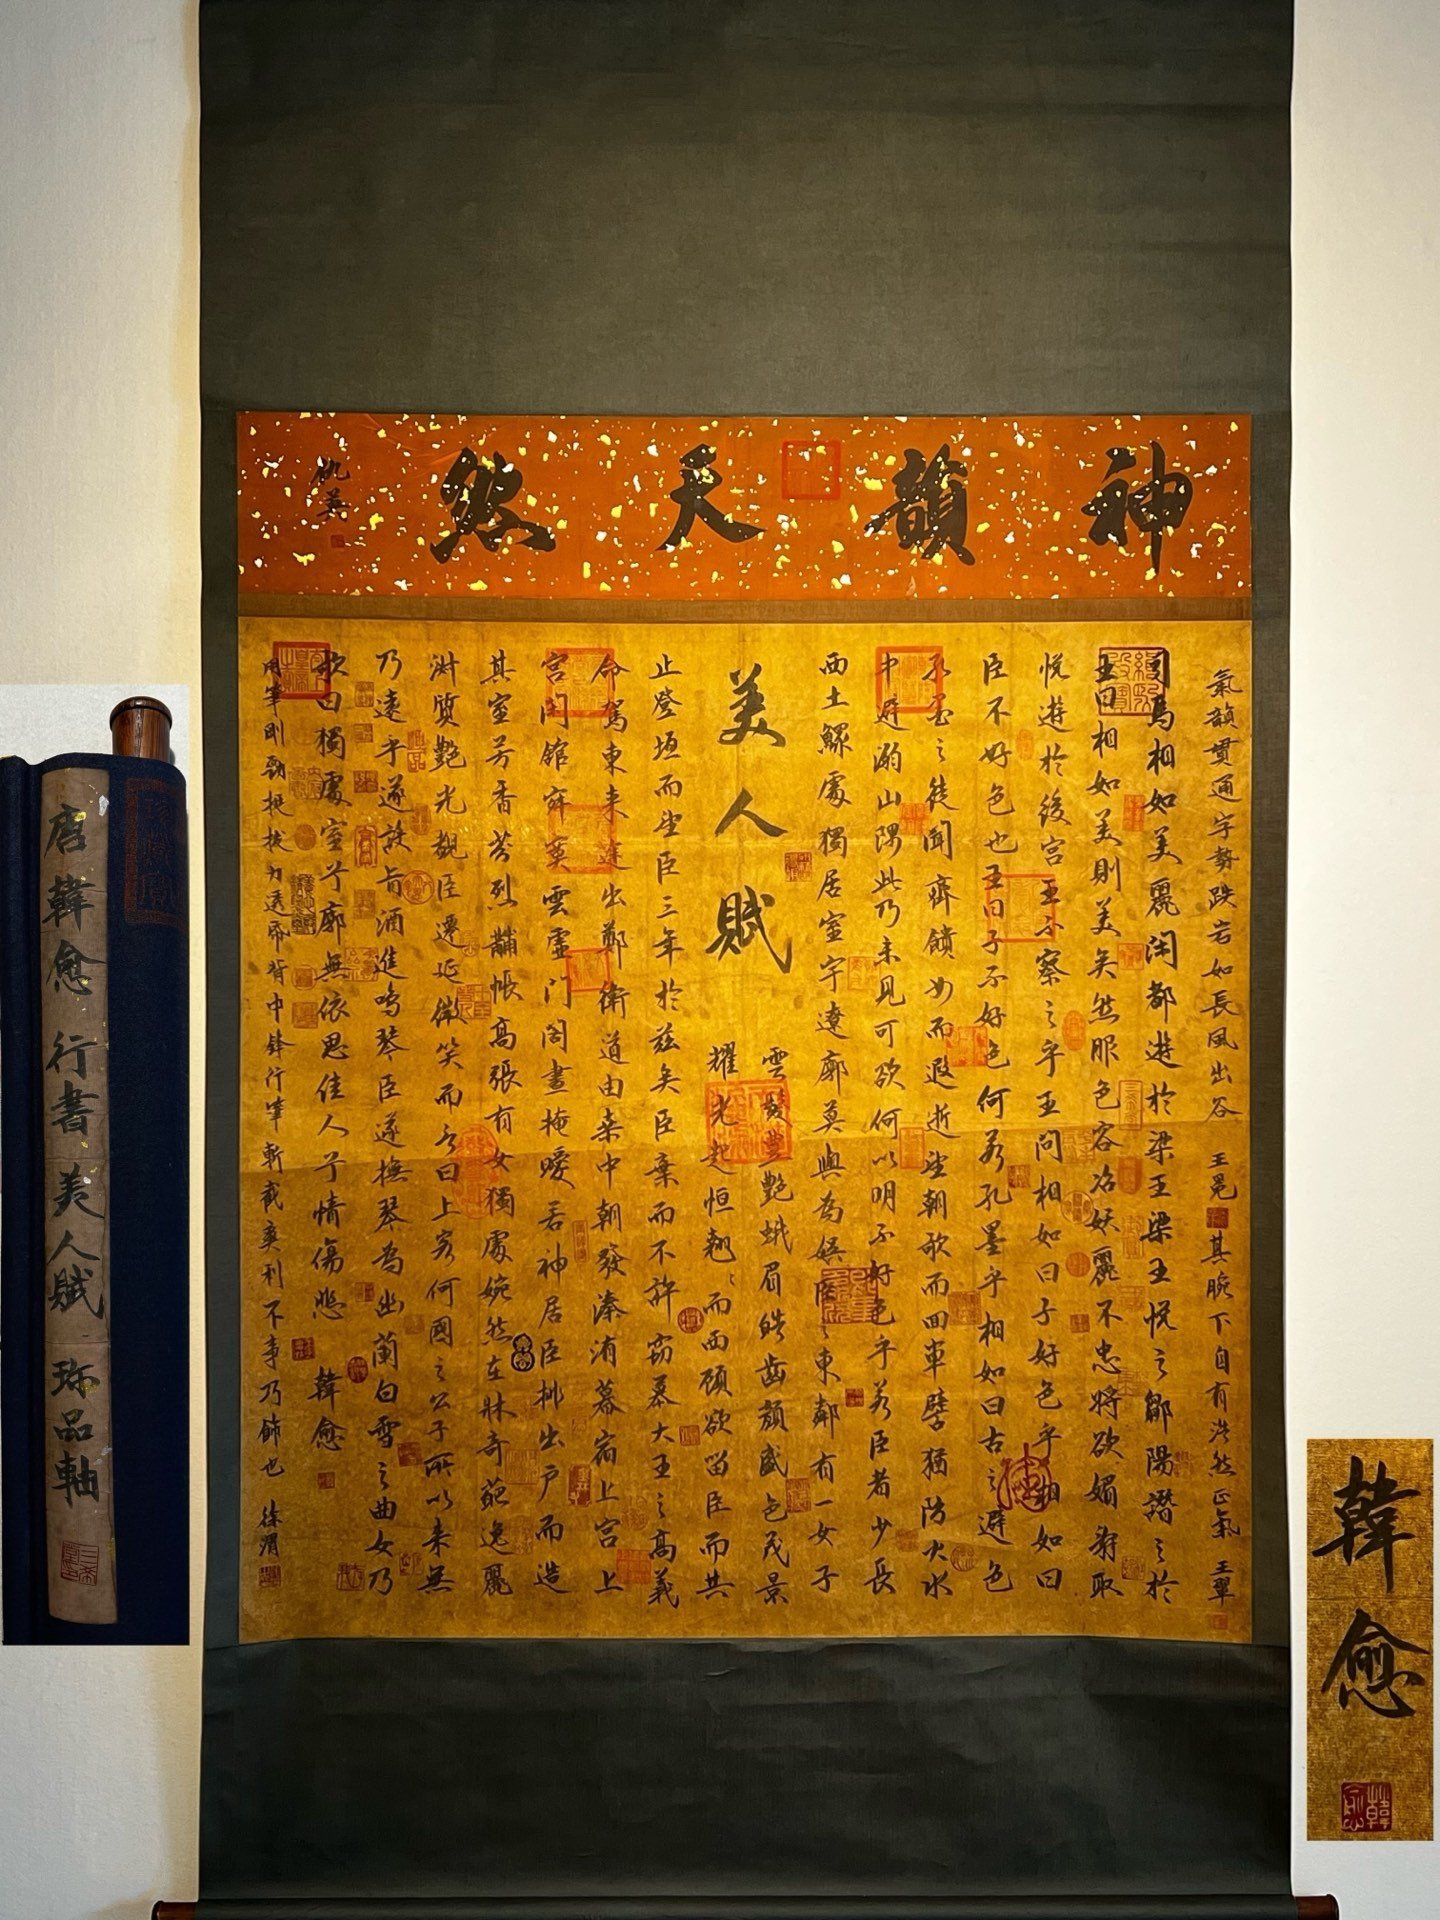 神韻天然
仇英
氣韻貫通字勢跌宕如長風出谷 王冕 其腕下自有浩然正氣 王翬
司馬相如美麗閑都遊於梁王梁王悅之鄒陽譖之於
王曰相如美則美矣然服色容冶妖麗不忠將欲媚辭取
悅遊於後宮王不察之乎王問相如曰子好色乎相如曰
臣不好色也王曰子不好色何若孔墨乎相如曰古之避色
孔墨之徒聞齊饋女而遐逝望朝歌而回車譬猶防火水
中避溺山隅此乃未見可欲何以明不好色乎若臣者少長
西土鰥處獨居室宇遼廓莫與為娛臣之東鄰有一女子
美人賦
雲髮豐艷蛾眉皓齒顏盛色茂景
耀光起恒翹〻而西顧欲留臣而共
止登垣而望臣三年於茲矣臣棄而不許竊慕大王之高義
命駕東來途出鄭衛道由桑中朝發溱洧暮宿上宮上
宮閒館寂寞雲虛門閣晝掩曖若神居臣排出戶而造
其室芳香芬烈黼帳高張有女獨處婉然在牀奇葩逸麗
淑質艷光覩臣遷延微笑而言曰上客何國之公子所以來無
乃遠乎遂設旨酒進鳴琴臣遂撫琴為幽蘭白雪之曲女乃
歌曰獨處室兮廓無依思佳人兮情傷悲 韓愈
用筆剛勁挺拔力透紙背中鋒行筆斬截爽利不事乃飾也 徐渭
唐韓愈行書美人賦 珍品軸
韓愈
韓愈